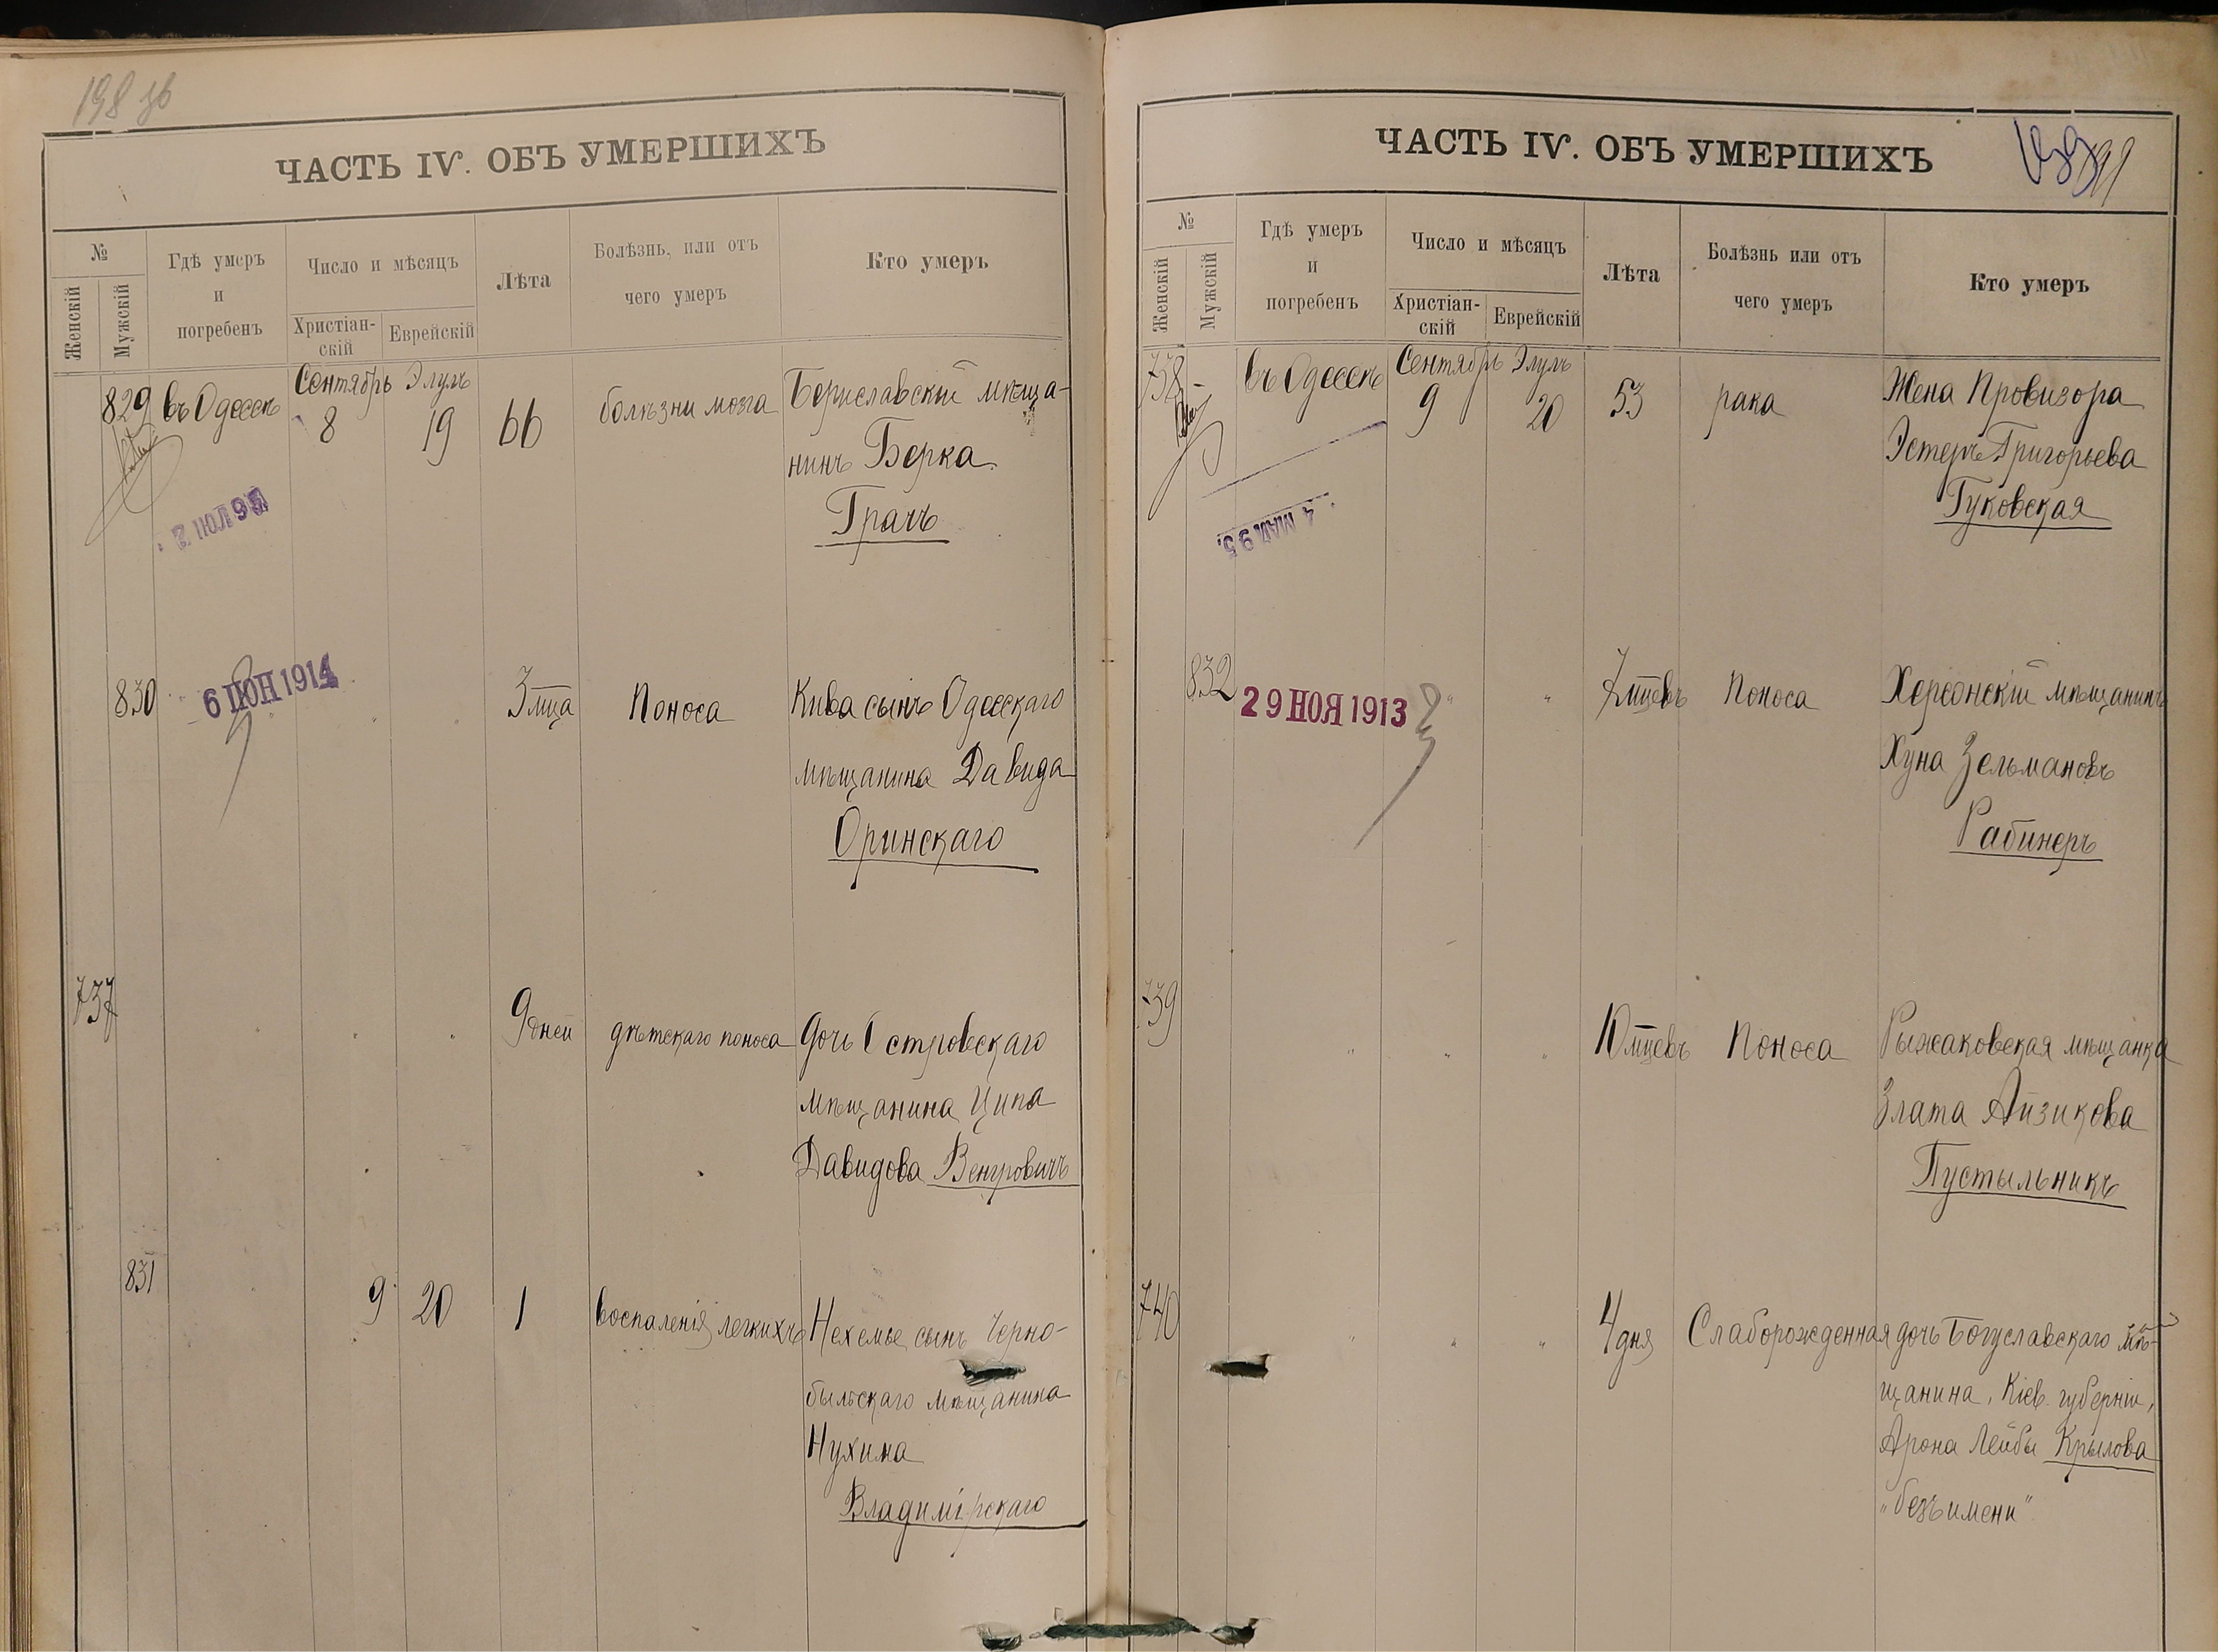 198 зв
ЧАСТЬ IV. ОБЪ УМЕРШИХЪ
№
Женскій
Мужскій
Гдѣ умеръ
и
погребенъ
Число и мѣсяцъ
Христіан-
скій
Еврейскій
Лѣта
Болѣзнь, или отъ
чего умеръ
Кто умеръ
829 въ Одессѣ Сентябрь 8 Элулъ 19 66 болѣзни мозга Бериславскій мѣща-
нинъ Берка
Грачъ
830 6 ІЮН 1914 3 мца Поноса Кива сынъ Одесскаго
мѣщанина Давида
Оринскаго
737 9 дней дѣтскаго поноса Дочь Островскаго
мѣщанина Ципа
Давидова Венгровичъ
831 9 20 1 воспаленія легкихъ Нехемье сынъ Черно-
быльскаго мѣщанина
Нухима
Владимірскаго
ЧАСТЬ IV. ОБЪ УМЕРШИХЪ
199
№
Женскій
Мужскій
Гдѣ умеръ
и
погребенъ
Число и мѣсяцъ
Христіан-
скій
Еврейскій
Лѣта
Болѣзнь или отъ
чего умеръ
Кто умеръ
738 въ Одессѣ Сентябрь 9 Элулъ 20 53 рака Жена Провизора
Эстеръ Григорьева
Гуковская
4 МАЯ 95
832 29 НОЯ 1913 " " 7 мцевъ Поноса Херсонскій мѣщанинъ
Хуна Зельмановъ
Рабинеръ
739 " " " 10 мцевъ Поноса Рыжаковская мѣщанка
Злата Айзикова
Пустыльникъ
740 " " " 4 дня Слаборожденная дочь Богуславскаго мѣ-
щанина, Кіев. губерніи,
Арона Лейбы Крылова
"безъ имени"